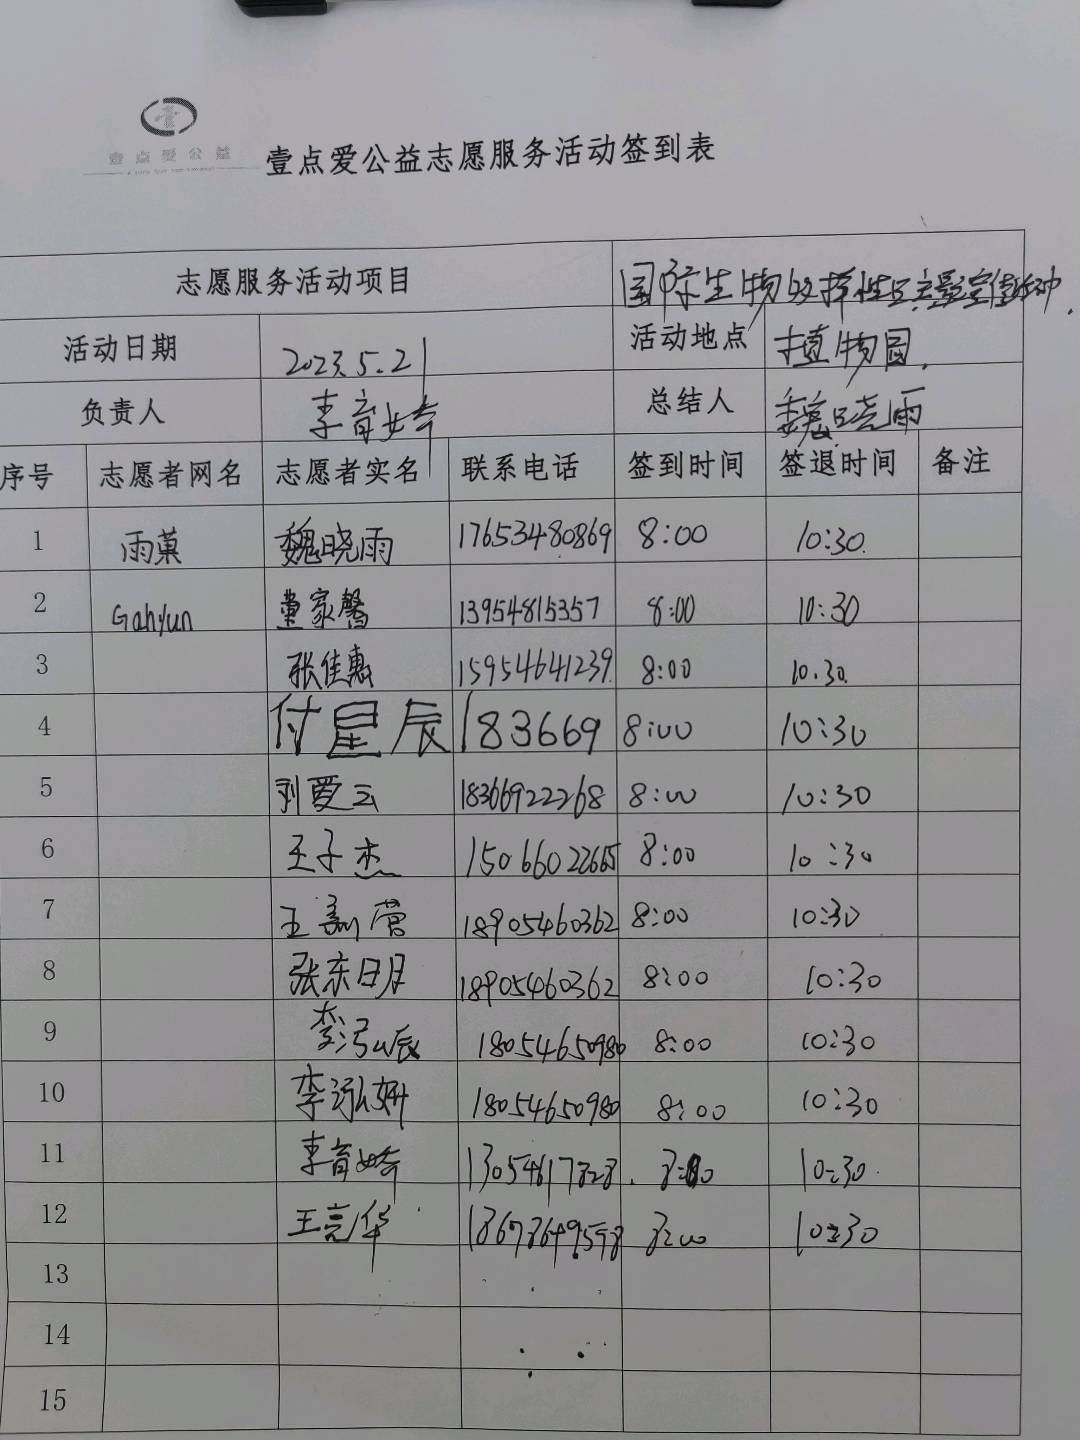 壹点爱公益
壹点爱公益志愿服务活动签到表
志愿服务活动项目 国际生物多样性日主题宣传活动.
活动日期 2023.5.21 活动地点 植物园.
负责人 李育婷 总结人 魏晓雨
序号 志愿者网名 志愿者实名 联系电话 签到时间 签退时间 备注
1 雨菓 魏晓雨 17653480869 8:00 10:30.
2 Gahyun 董家馨 13954815357 8:00 10:30
3 张佳惠 15954641239. 8:00 10.30.
4 付星辰 183669 8:00 10:30
5 刘爱云 18366922268 8:00 10:30
6 王子杰 15066022665 8:00 10:30
7 王 营 18905460362 8:00 10:30
8 张东明 18905460362 8:00 10:30
9 李泓辰 18054650980 8:00 10:30
10 李泓妍 18054650980 8:00 10:30
11 李育婷 13054617828. 8:00 10:30.
12 王亮华 18678649598 8:00 10:30
13
14
15